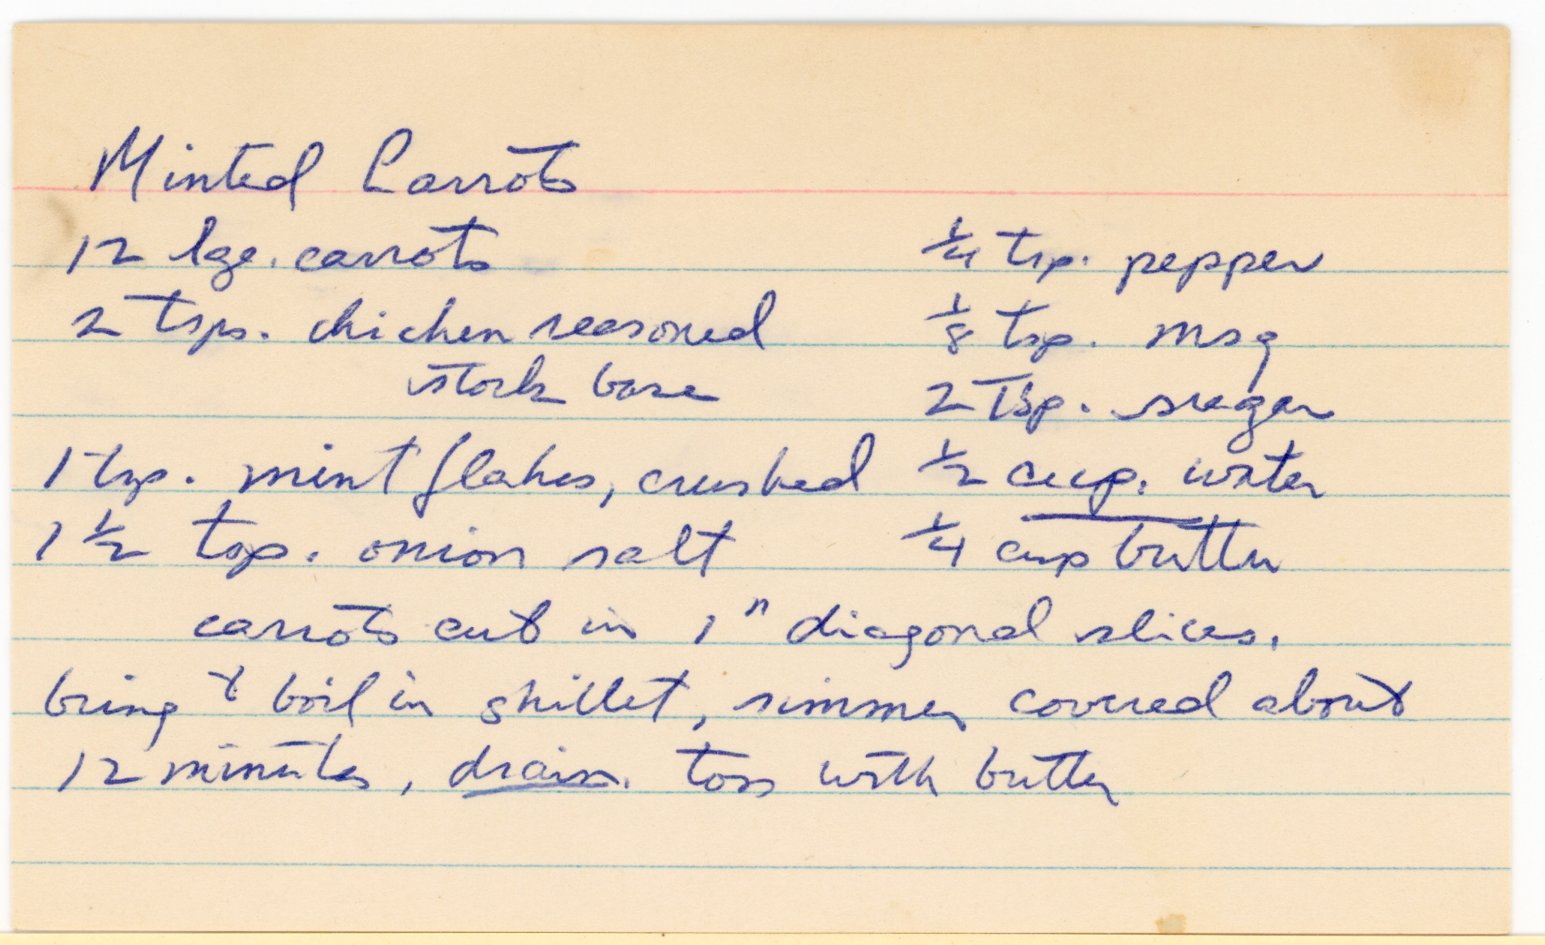 Minted Carrots
12 lge. carrots
2 tsps. chicken seasoned
stock base
1 tsp. mint flakes, crushed
1 1/2 tsp. onion salt
1/4 tsp. pepper
1/8 tsp. msg
2 Tsp. sugar
1/2 cup. water
1/4 cup butter
carrots cut in 1" diagonal slices.
bring to boil in skillet, simmer covered about
12 minutes, drain. toss with butter